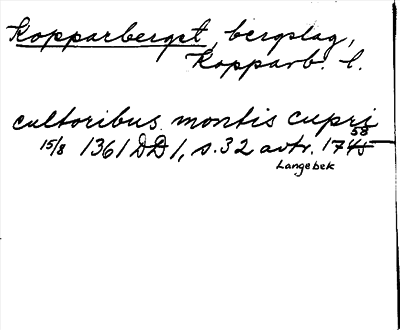 Kopparberget, bergslag,
Kopparb. l.
cultoribus montis cupri
15/8 1361 DD 1, s. 32 avtr. 1745 58
Langebek